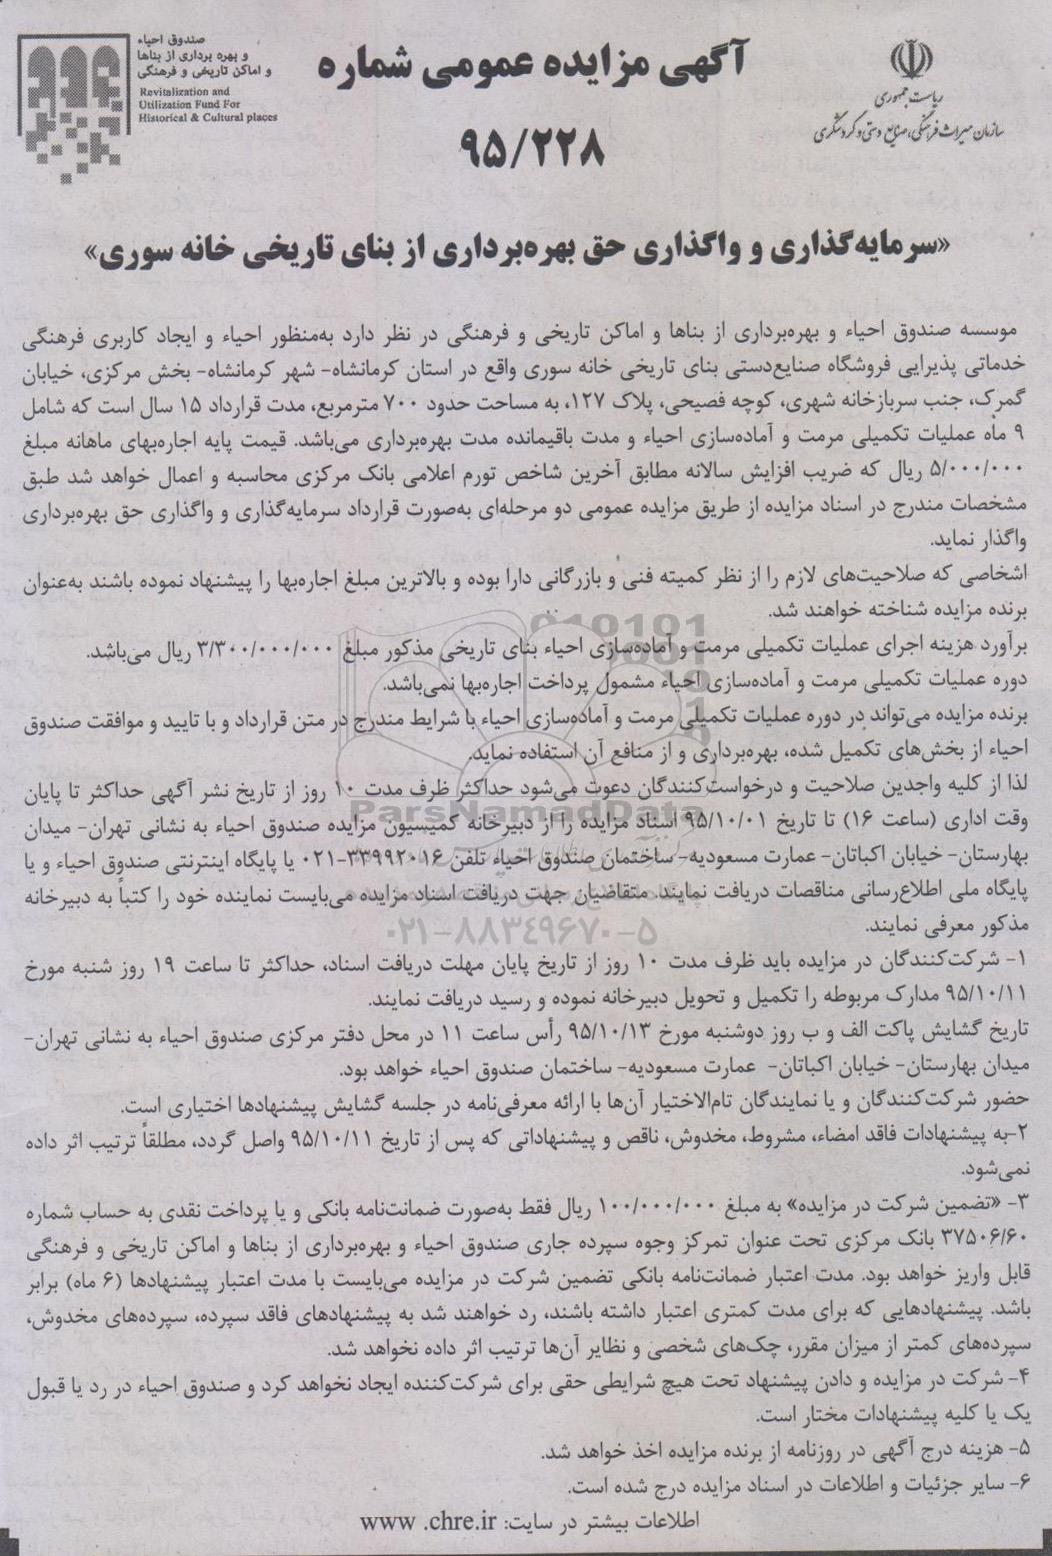 صندوق احیاء
و بهره برداری از بناها
و اماکن تاریخی و فرهنگی
Revitalization and
Utilization Fund For
Historical & Cultural places
ریاست جمهوری
سازمان میراث فرهنگی، صنایع دستی و گردشگری
آگهی مزایده عمومی شماره
۹۵/۲۲۸
«سرمایه‌گذاری و واگذاری حق بهره‌برداری از بنای تاریخی خانه سوری»
موسسه صندوق احیاء و بهره‌برداری از بناها و اماکن تاریخی و فرهنگی در نظر دارد به‌منظور احیاء و ایجاد کاربری فرهنگی
خدماتی پذیرایی فروشگاه صنایع‌دستی بنای تاریخی خانه سوری واقع در استان کرمانشاه- شهر کرمانشاه- بخش مرکزی، خیابان
گمرک، جنب سربازخانه شهری، کوچه فصیحی، پلاک ۱۲۷، به مساحت حدود ۷۰۰ مترمربع، مدت قرارداد ۱۵ سال است که شامل
۹ ماه عملیات تکمیلی مرمت و آماده‌سازی احیاء و مدت باقیمانده مدت بهره‌برداری می‌باشد. قیمت پایه اجاره‌بهای ماهانه مبلغ
۵/۰۰۰/۰۰۰ ریال که ضریب افزایش سالانه مطابق آخرین شاخص تورم اعلامی بانک مرکزی محاسبه و اعمال خواهد شد طبق
مشخصات مندرج در اسناد مزایده از طریق مزایده عمومی دو مرحله‌ای به‌صورت قرارداد سرمایه‌گذاری و واگذاری حق بهره‌برداری
واگذار نماید.
اشخاصی که صلاحیت‌های لازم را از نظر کمیته فنی و بازرگانی دارا بوده و بالاترین مبلغ اجاره‌بها را پیشنهاد نموده باشند به‌عنوان
برنده مزایده شناخته خواهند شد.
برآورد هزینه اجرای عملیات تکمیلی مرمت و آماده‌سازی احیاء بنای تاریخی مذکور مبلغ ۳/۳۰۰/۰۰۰/۰۰۰ ریال می‌باشد.
دوره عملیات تکمیلی مرمت و آماده‌سازی احیاء مشمول پرداخت اجاره‌بها نمی‌باشد.
برنده مزایده می‌تواند در دوره عملیات تکمیلی مرمت و آماده‌سازی احیاء با شرایط مندرج در متن قرارداد و با تایید و موافقت صندوق
احیاء از بخش‌های تکمیل شده، بهره‌برداری و از منافع آن استفاده نماید.
لذا از کلیه واجدین صلاحیت و درخواست‌کنندگان دعوت می‌شود حداکثر ظرف مدت ۱۰ روز از تاریخ نشر آگهی حداکثر تا پایان
ParsNamadData
وقت اداری (ساعت ۱۶) تا تاریخ ۹۵/۱۰/۰۱ اسناد مزایده را از دبیرخانه کمیسیون مزایده صندوق احیاء به نشانی تهران- میدان
بهارستان- خیابان اکباتان- عمارت مسعودیه- ساختمان صندوق احیاء تلفن ۳۳۹۹۲۰۱۶-۰۲۱ یا پایگاه اینترنتی صندوق احیاء و یا
پایگاه ملی اطلاع‌رسانی مناقصات دریافت نمایند. متقاضیان جهت دریافت اسناد مزایده می‌بایست نماینده خود را کتباً به دبیرخانه
مذکور معرفی نمایند.
۰۲۱-۸۸۳۴۹۶۷۰-۵
۱- شرکت‌کنندگان در مزایده باید ظرف مدت ۱۰ روز از تاریخ پایان مهلت دریافت اسناد، حداکثر تا ساعت ۱۹ روز شنبه مورخ
۹۵/۱۰/۱۱ مدارک مربوطه را تکمیل و تحویل دبیرخانه نموده و رسید دریافت نمایند.
تاریخ گشایش پاکت الف و ب روز دوشنبه مورخ ۹۵/۱۰/۱۳ رأس ساعت ۱۱ در محل دفتر مرکزی صندوق احیاء به نشانی تهران-
میدان بهارستان- خیابان اکباتان- عمارت مسعودیه- ساختمان صندوق احیاء خواهد بود.
حضور شرکت‌کنندگان و یا نمایندگان تام‌الاختیار آن‌ها با ارائه معرفی‌نامه در جلسه گشایش پیشنهادها اختیاری است.
۲-به پیشنهادات فاقد امضاء، مشروط، مخدوش، ناقص و پیشنهاداتی که پس از تاریخ ۹۵/۱۰/۱۱ واصل گردد، مطلقاً ترتیب اثر داده
نمی‌شود.
۳- «تضمین شرکت در مزایده» به مبلغ ۱۰۰/۰۰۰/۰۰۰ ریال فقط به‌صورت ضمانت‌نامه بانکی و یا پرداخت نقدی به حساب شماره
۳۷۵۰۶/۶۰ بانک مرکزی تحت عنوان تمرکز وجوه سپرده جاری صندوق احیاء و بهره‌برداری از بناها و اماکن تاریخی و فرهنگی
قابل واریز خواهد بود. مدت اعتبار ضمانت‌نامه بانکی تضمین شرکت در مزایده می‌بایست با مدت اعتبار پیشنهادها (۶ ماه) برابر
باشد. پیشنهادهایی که برای مدت کمتری اعتبار داشته باشند، رد خواهند شد به پیشنهادهای فاقد سپرده، سپرده‌های مخدوش،
سپرده‌های کمتر از میزان مقرر، چک‌های شخصی و نظایر آن‌ها ترتیب اثر داده نخواهد شد.
۴- شرکت در مزایده و دادن پیشنهاد تحت هیچ شرایطی حقی برای شرکت‌کننده ایجاد نخواهد کرد و صندوق احیاء در رد یا قبول
یک یا کلیه پیشنهادات مختار است.
۵- هزینه درج آگهی در روزنامه از برنده مزایده اخذ خواهد شد.
۶- سایر جزئیات و اطلاعات در اسناد مزایده درج شده است.
اطلاعات بیشتر در سایت: www .chre.ir